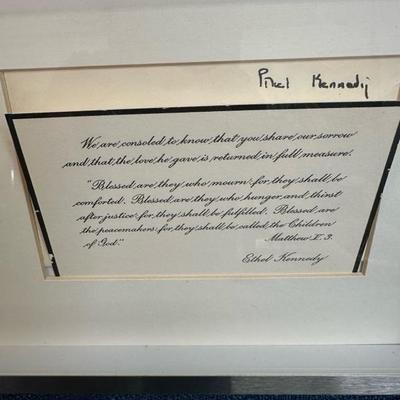 Ethel Kennedy
We are consoled to know that you share our sorrow
and that the love he gave is returned in full measure.
"Blessed are they who mourn: for they shall be
comforted. Blessed are they who hunger and thirst
after justice: for they shall be fulfilled. Blessed are
the peacemakers: for they shall be called the Children
of God."
Matthew V. 3.
Ethel Kennedy